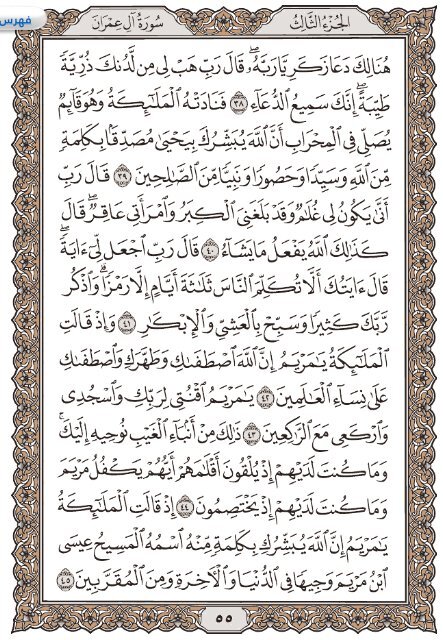 فهرس
سُورَةُ آلِ عِمْرَانَ الجُزْءُ الثَّالِثُ
هُنَالِكَ دَعَا زَكَرِيَّا رَبَّهُۥۖ قَالَ رَبِّ هَبْ لِى مِن لَّدُنكَ ذُرِّيَّةً
طَيِّبَةًۖ إِنَّكَ سَمِيعُ ٱلدُّعَآءِ ٣٨ فَنَادَتْهُ ٱلْمَلَٰٓئِكَةُ وَهُوَ قَآئِمٌ
يُصَلِّى فِى ٱلْمِحْرَابِ أَنَّ ٱللَّهَ يُبَشِّرُكَ بِيَحْيَىٰ مُصَدِّقًۢا بِكَلِمَةٍ
مِّنَ ٱللَّهِ وَسَيِّدًا وَحَصُورًا وَنَبِيًّا مِّنَ ٱلصَّٰلِحِينَ ٣٩ قَالَ رَبِّ
أَنَّىٰ يَكُونُ لِى غُلَٰمٌ وَقَدْ بَلَغَنِىَ ٱلْكِبَرُ وَٱمْرَأَتِى عَاقِرٌۖ قَالَ
كَذَٰلِكَ ٱللَّهُ يَفْعَلُ مَا يَشَآءُ ٤٠ قَالَ رَبِّ ٱجْعَل لِّىٓ ءَايَةًۖ
قَالَ ءَايَتُكَ أَلَّا تُكَلِّمَ ٱلنَّاسَ ثَلَٰثَةَ أَيَّامٍ إِلَّا رَمْزًاۗ وَٱذْكُر
رَّبَّكَ كَثِيرًا وَسَبِّحْ بِٱلْعَشِىِّ وَٱلْإِبْكَٰرِ ٤١ وَإِذْ قَالَتِ
ٱلْمَلَٰٓئِكَةُ يَٰمَرْيَمُ إِنَّ ٱللَّهَ ٱصْطَفَىٰكِ وَطَهَّرَكِ وَٱصْطَفَىٰكِ
عَلَىٰ نِسَآءِ ٱلْعَٰلَمِينَ ٤٢ يَٰمَرْيَمُ ٱقْنُتِى لِرَبِّكِ وَٱسْجُدِى
وَٱرْكَعِى مَعَ ٱلرَّٰكِعِينَ ٤٣ ذَٰلِكَ مِنْ أَنۢبَآءِ ٱلْغَيْبِ نُوحِيهِ إِلَيْكَۚ
وَمَا كُنتَ لَدَيْهِمْ إِذْ يُلْقُونَ أَقْلَٰمَهُمْ أَيُّهُمْ يَكْفُلُ مَرْيَمَ
وَمَا كُنتَ لَدَيْهِمْ إِذْ يَخْتَصِمُونَ ٤٤ إِذْ قَالَتِ ٱلْمَلَٰٓئِكَةُ
يَٰمَرْيَمُ إِنَّ ٱللَّهَ يُبَشِّرُكِ بِكَلِمَةٍ مِّنْهُ ٱسْمُهُ ٱلْمَسِيحُ عِيسَى
ٱبْنُ مَرْيَمَ وَجِيهًا فِى ٱلدُّنْيَا وَٱلْءَاخِرَةِ وَمِنَ ٱلْمُقَرَّبِينَ ٤٥
٥٥